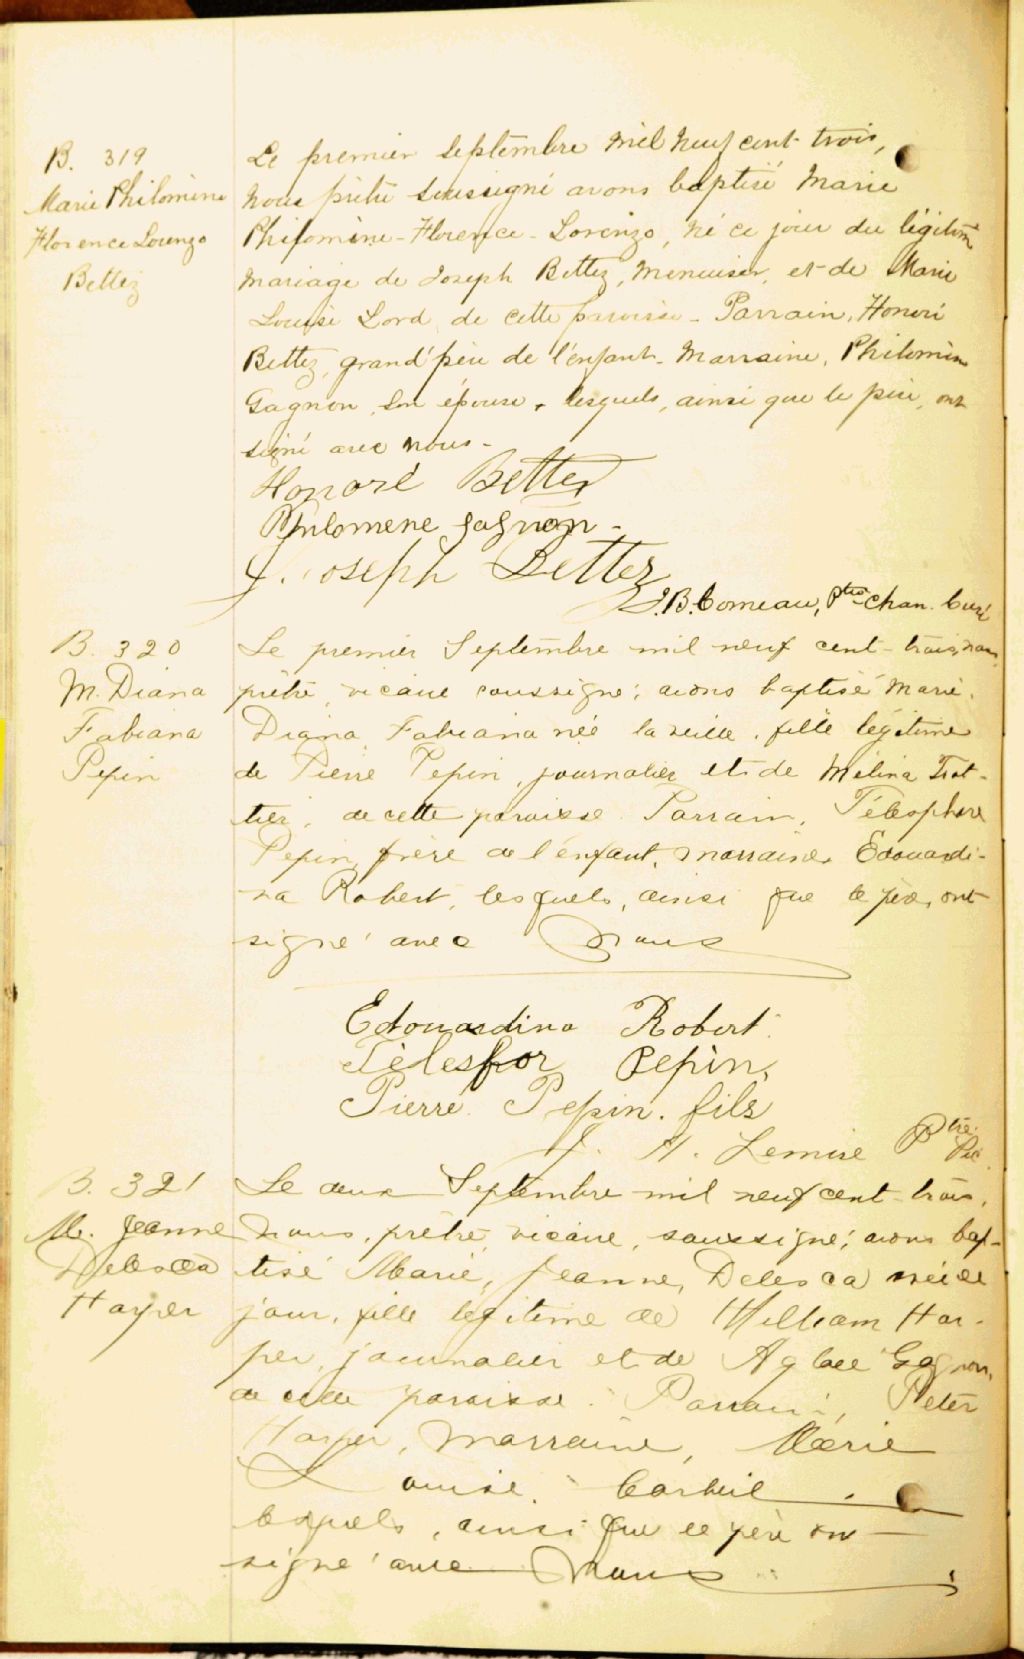 B. 319
Marie Philomène
Florence Lorenzo
Bettez
Le premier Septembre mil neuf cent trois,
nous prêtre soussigné avons baptisé Marie
Philomène-Florence-Lorenzo, né ce jour du légitime
mariage de Joseph Bettez, menuisier, et de Marie
Louise Lord, de cette paroisse - Parrain, Honoré
Bettez, grand'père de l'enfant - Marraine, Philomène
Gagnon, son épouse, lesquels, ainsi que le père, ont
signé avec nous -
Honoré Bettez
Philomene Gagnon -
J. Joseph Bettez
J.B. Comeau, Ptre Chan. Curé
B. 320
M. Diana
Fabiana
Pepin
Le premier Septembre mil neuf cent-trois, nous,
prêtre, vicaire soussigné, avons baptisé Marie.
Diana, Fabiana née la veille, fille légitime
de Pierre Pepin, journalier et de Mélina Trot-
tier, de cette paroisse. Parrain, Télesphore
Pepin, frère de l'enfant, marraine, Edouardi-
na Robert, lesquels, ainsi que le père, ont
signé avec Nous
Edouardina Robert.
Télesfor Pepin,
Pierre Pepin. fils
J. H. Lemire Ptre. Vic.
B. 321
M. Jeanne
Delesca
Harper
Le deux Septembre mil neuf cent-trois,
nous, prêtre vicaire, soussigné, avons bap-
tisé Marie, Jeanne, Delesca née ce
jour, fille légitime de William Har-
per, journalier et de Aglaé Gagnon,
de cette paroisse. Parrain, Peter
Harper, Marraine, Marie
Louise. Corbeil
lesquels, ainsi que le père ont
signé avec Nous